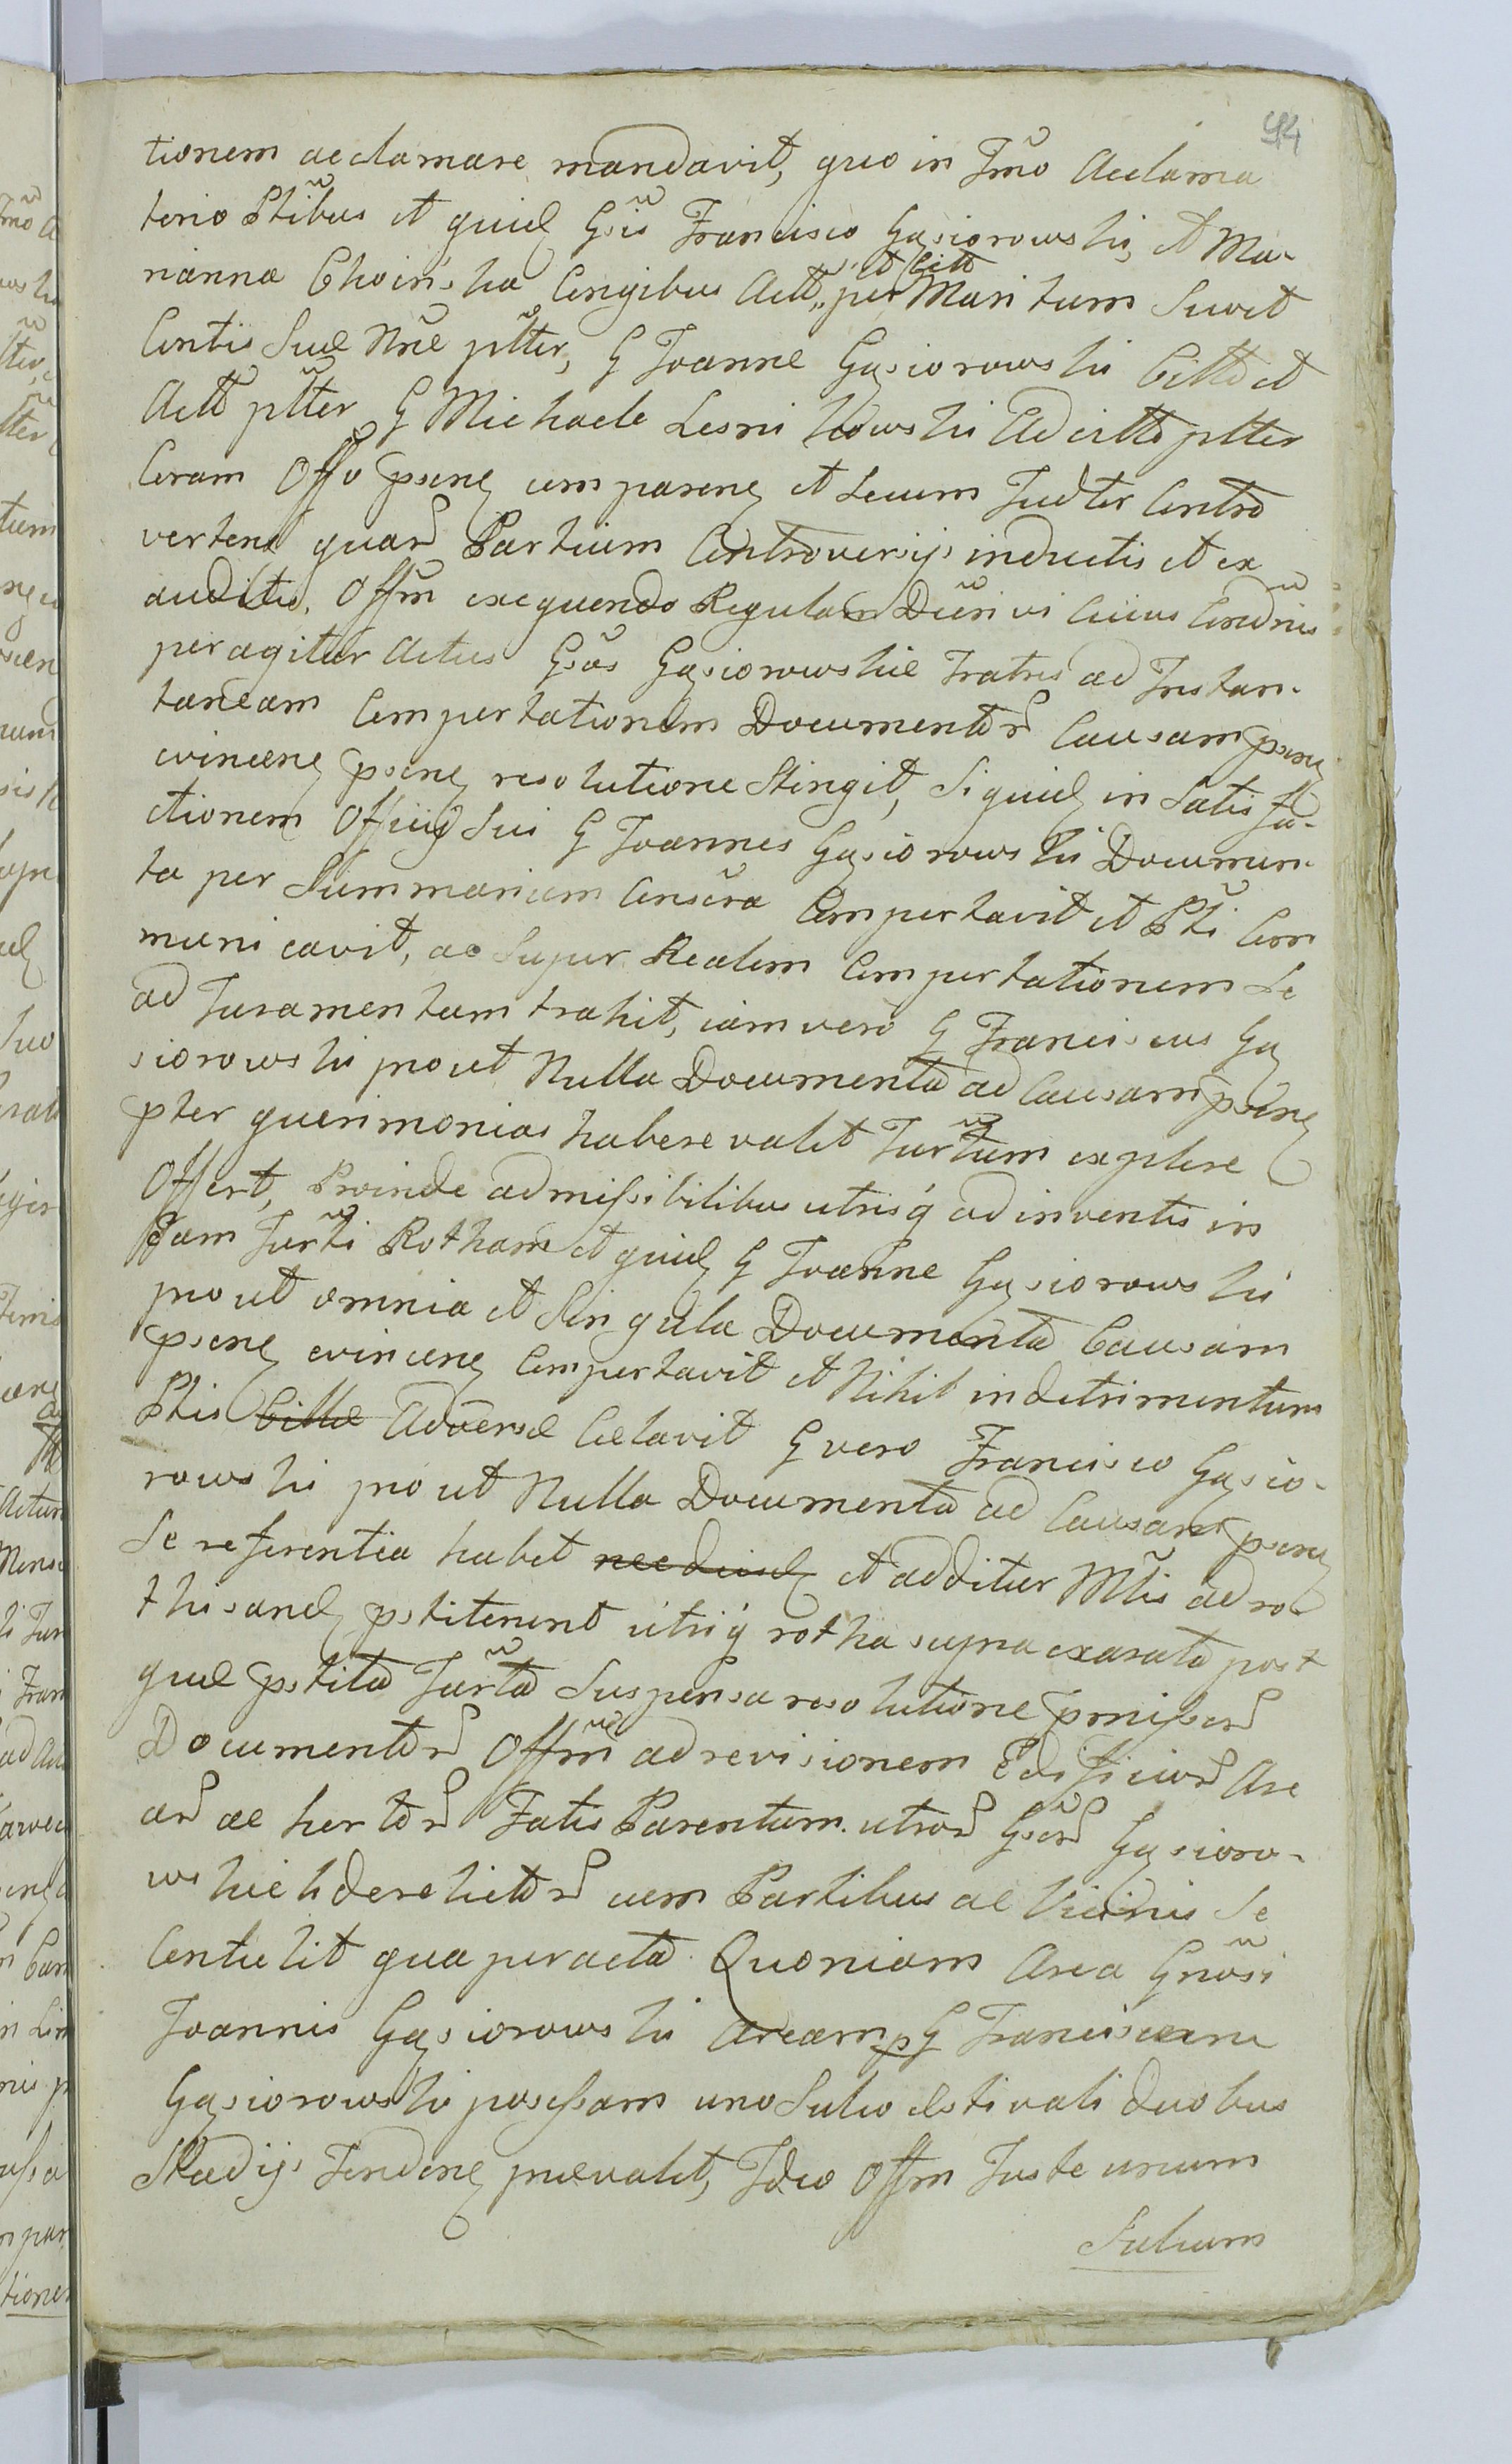 94
tionem acclamare mandavit, quo in Tmõ Acclama
torio Ptibus et quidȩ Gsis Francisco Gąsiorowski, et Ma-
rianna Choińska Conȷgibus Actt, et Citt per Maritum Suum et
Contis Suæ Nne pltter, G Joanne Gąsiorowski Citto et
Actt pltter G Michaele Lesnikowski Adcitto pltter
Coram Offo psenȩ comparenȩ et Secum Judter Contro
vertenȩ quar Partium Controversijs inductis et ex
auditis, Offm exequendo Regulam Divi vi cuius Condnis
peragitur Actus Gsos Gąsiorowskie Fratres ad Instan-
taneam Comportationem Documentor Causam psenȩ
evincenȩ psenȩ resolutione Stingit, Siquidȩ in Satis fa-
ctionem Officij Sui G Joannes Gąsiorowski Documen-
ta per Summarium Conscra Comportavit et Pti Com
municavit, ac Super Realem Comportationem Se
ad Juramentum trahit, iam vero G Franciscus Gą
siorowski prout Nulla Documenta ad Causam psenȩ
pter querimonias habere valet Jurtum explere
Offert, Proinde admissibilibus utrisq ad inventis in
eam Jurti Rotham et quidȩ G Joanne Gąsiorowski
prout omnia et Singula Documenta Causam
psenȩ evincenȩ Comportavit et Nihil in detrimentum
Ptis Cittæ Adversæ Celavit G vero Francisco Gąsio-
rowski prout Nulla Documenta ad Causam psenȩ
Se referentia habet et additur Mtis ad ro
thisandȩ pstiterunt utriq rotha supra exarata post
quæ pstita Jurta Suspensa resolutione pmissor
Documentor Offm ad revisionem Edificior Are
ar ac hortor Fatis Parentum utror Gsor Gąsioro-
wskich derelictor cum Partibus ac Vicinis Se
Contulit qua peracta Quoniam Area Gnosi
Joannis Gąsiorowski Aream p G Franciscum
Gąsiorowski possessam uno Sulco estivali duobus
Stadijs Tendenȩ prævalet, Ideo Offm Juste unum
Sulcum